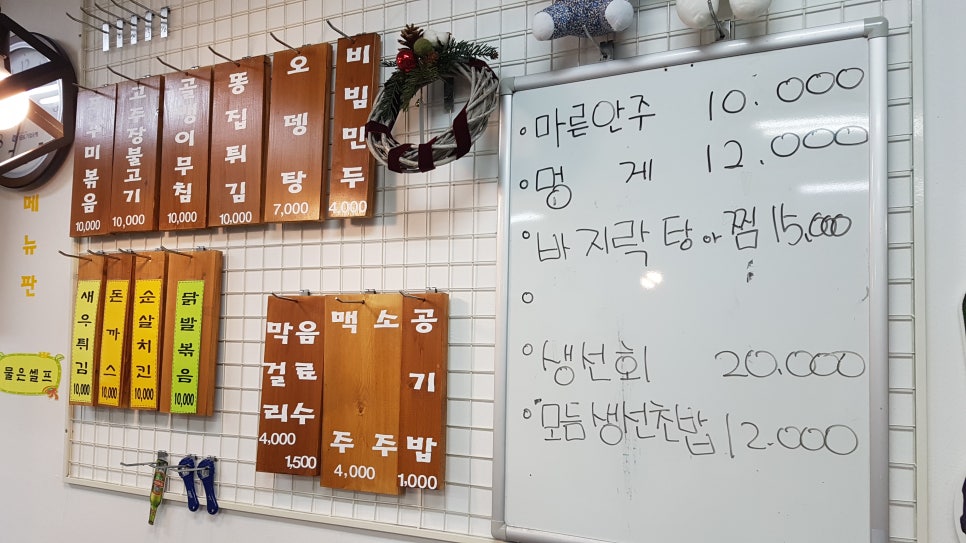 메뉴판
물은셀프
주미볶음
10,000
고추장불고기
10,000
골뱅이무침
10,000
똥집튀김
10,000
오뎅탕
7,000
비빔만두
4,000
새우튀김
10,000
돈까스
10,000
순살치킨
10,000
닭발볶음
10,000
막걸리
4,000
음료수
1,500
맥주
소주
4,000
공기밥
1,000
마른안주 10.000
멍게 12.000
바지락탕아찜 15,000
생선회 20.000
모듬생선찬밥 12.000